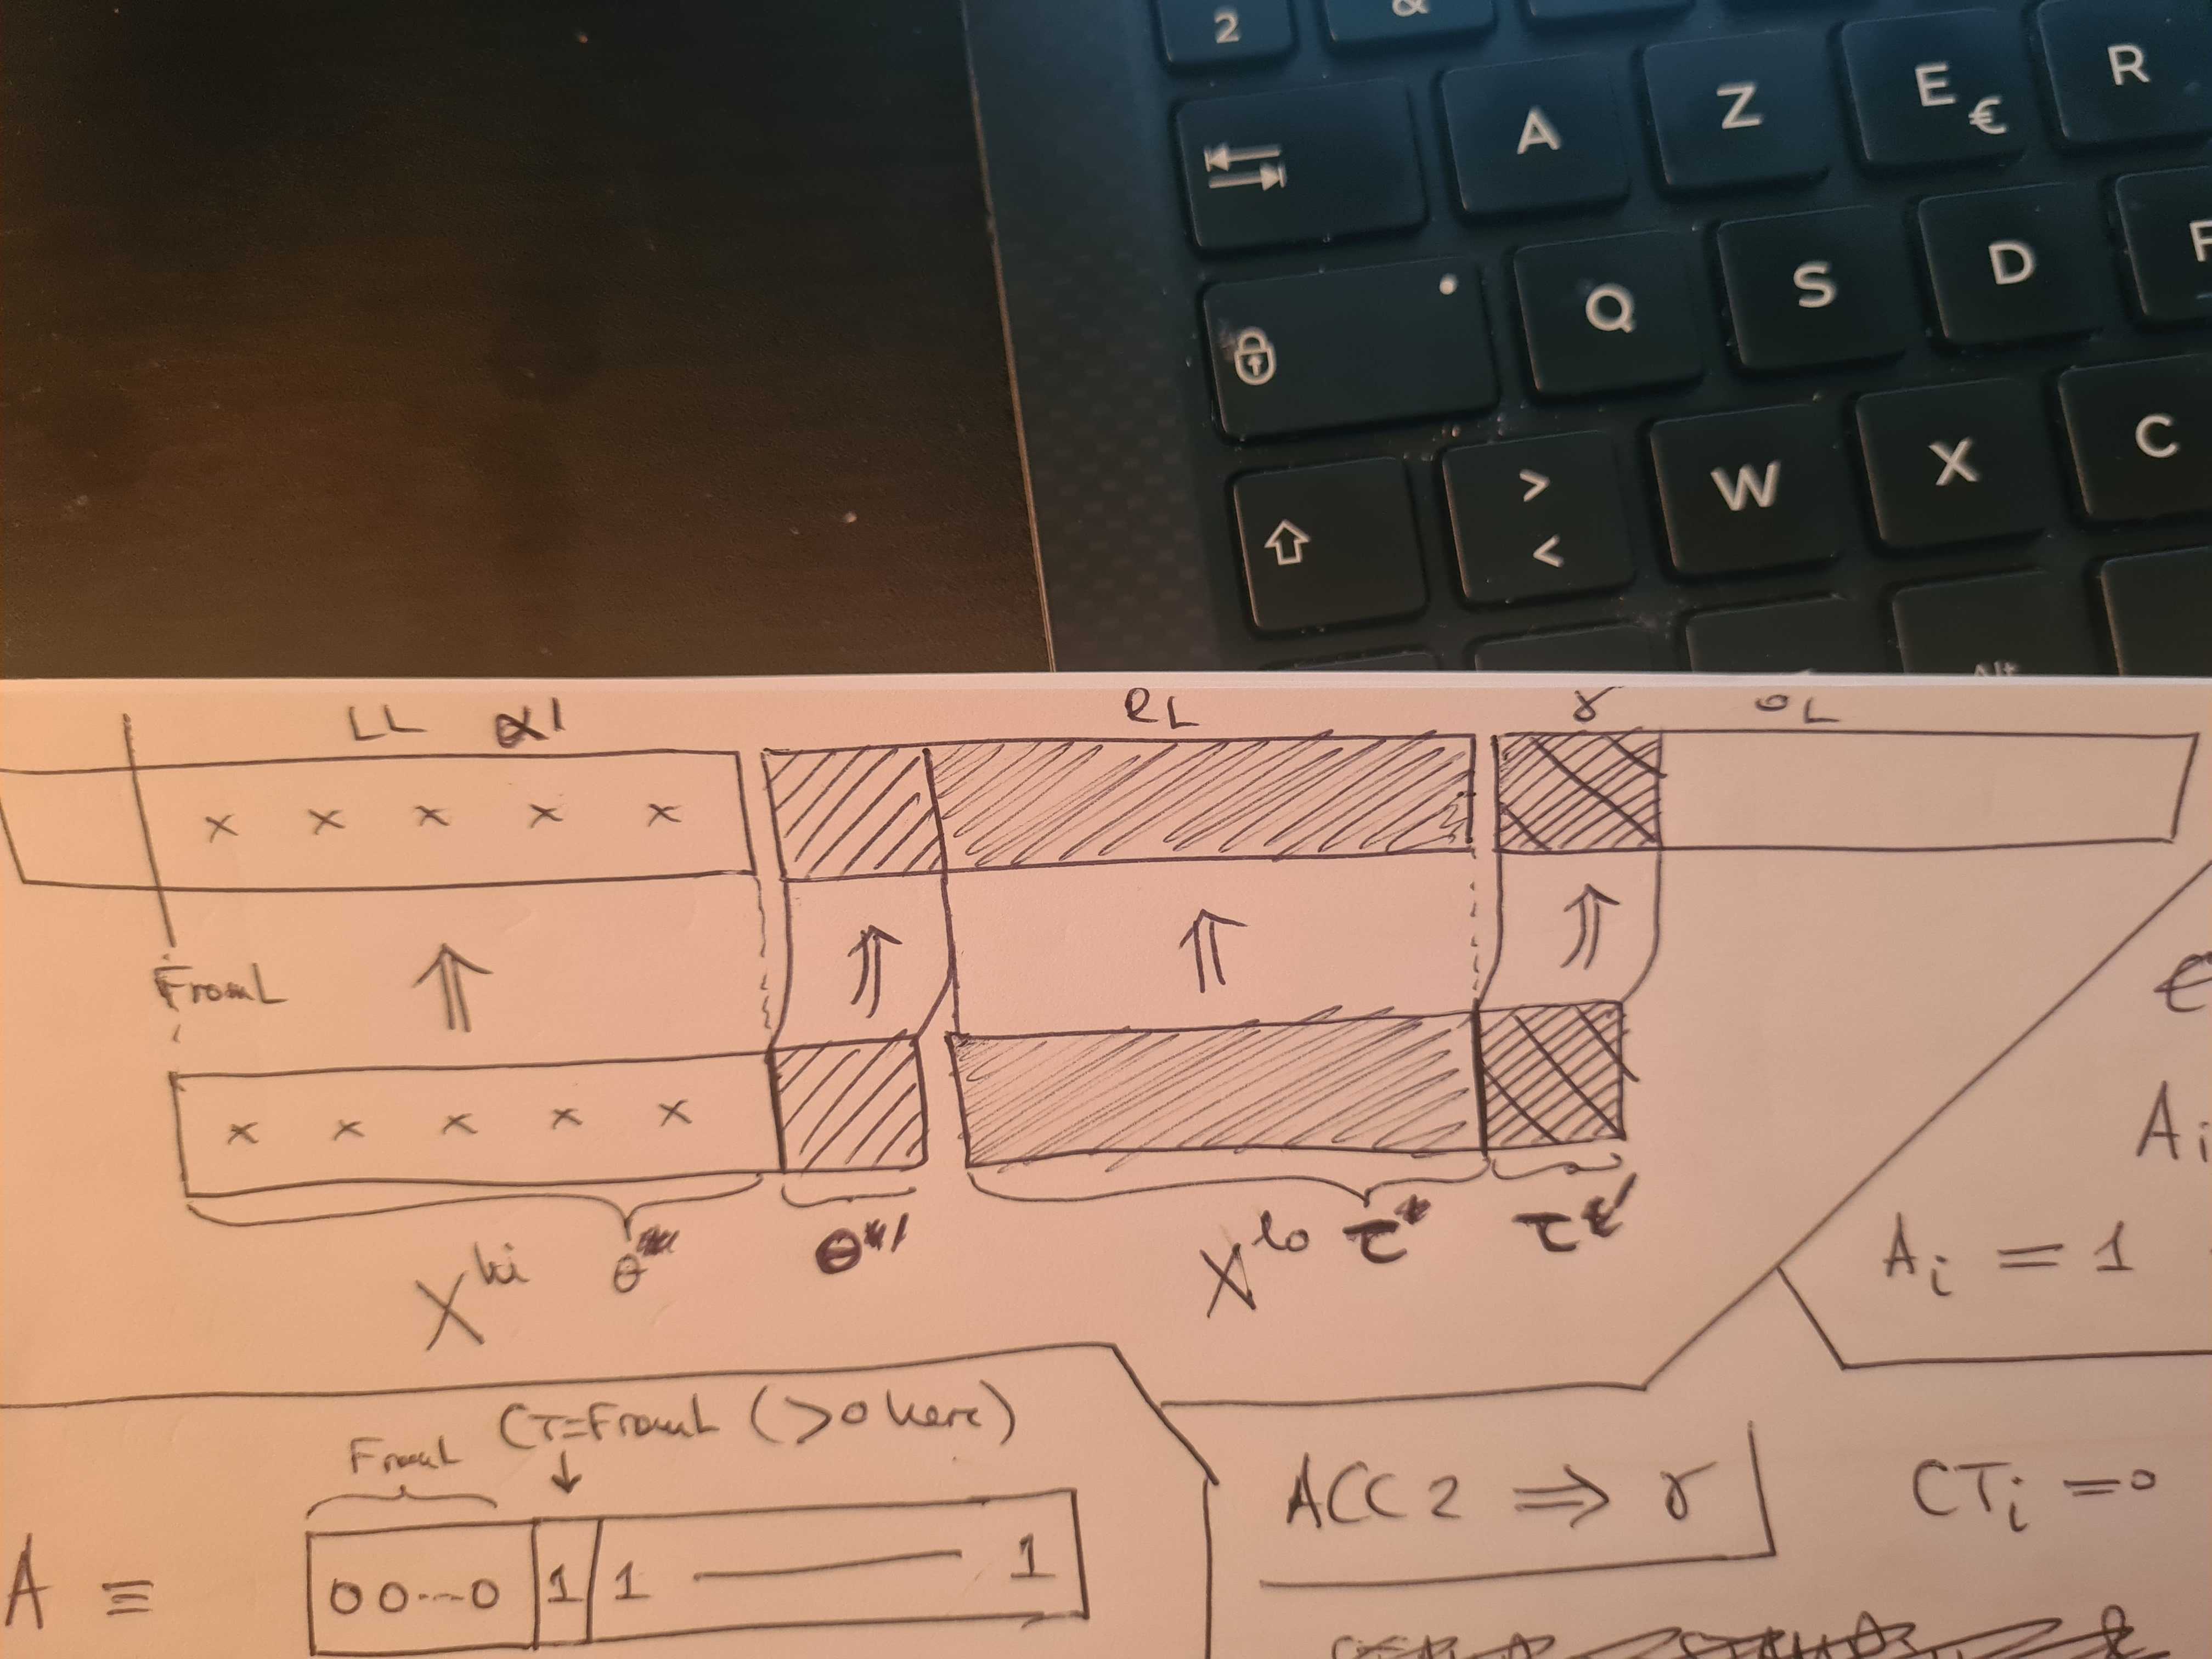 2 &
A Z E € R
Q S D F
> <
W X C
Alt
LL α'
RL
γ
OL
x x x x x
FromL
⇑ ⇑ ⇑ ⇑
x x x x x
X^hi
X^lo τ*
A_i
A_i = 1
FromL
CT=FromL (>0 here)
↓
A ≡ 00...0 1 1 — 1
ACC2 ⇒ γ
CT_i = 0